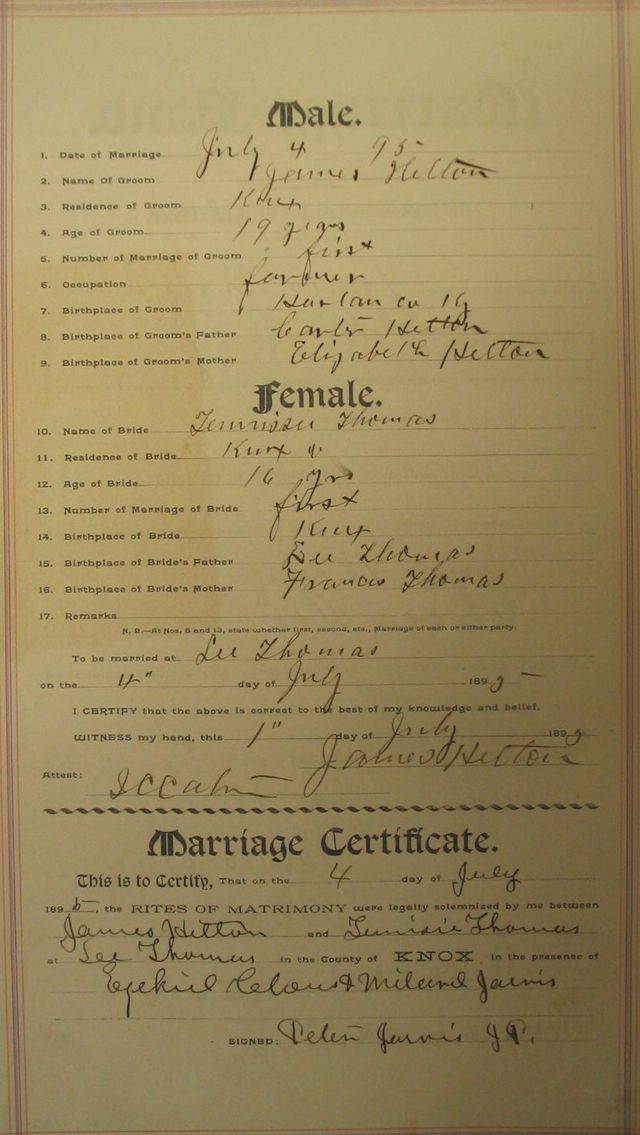 Male.
1. Date of Marriage July 4 95
2. Name Of Groom James Helton
3. Residence of Groom Knox
4. Age of Groom 19 years
5. Number of Marriage of Groom first
6. Occupation farmer
7. Birthplace of Groom Harlan co Ky
8. Birthplace of Groom's Father Carter Helton
9. Birthplace of Groom's Mother Elizabeth Helton
Female.
10. Name of Bride Thomas
11. Residence of Bride Knox
12. Age of Bride 16 yrs
13. Number of Marriage of Bride first
14. Birthplace of Bride Knox
15. Birthplace of Bride's Father Lee Thomas
16. Birthplace of Bride's Mother Frances Thomas
17. Remarks
N. B.—At Nos. 5 and 13, state whether first, second, etc., Marriage of each or either party.
To be married at Lee Thomas
on the 4" day of July 1895
I CERTIFY that the above is correct to the best of my knowledge and belief.
WITNESS my hand, this 1" day of July 1895
James Helton
Attest:
Marriage Certificate.
This is to Certify, That on the 4 day of July
1895, the RITES OF MATRIMONY were legally solemnized by me between
James Helton and Thomas
at Lee Thomas in the County of KNOX in the presence of
Ezekiel & Jarvis
SIGNED: Peter Jarvis J P.